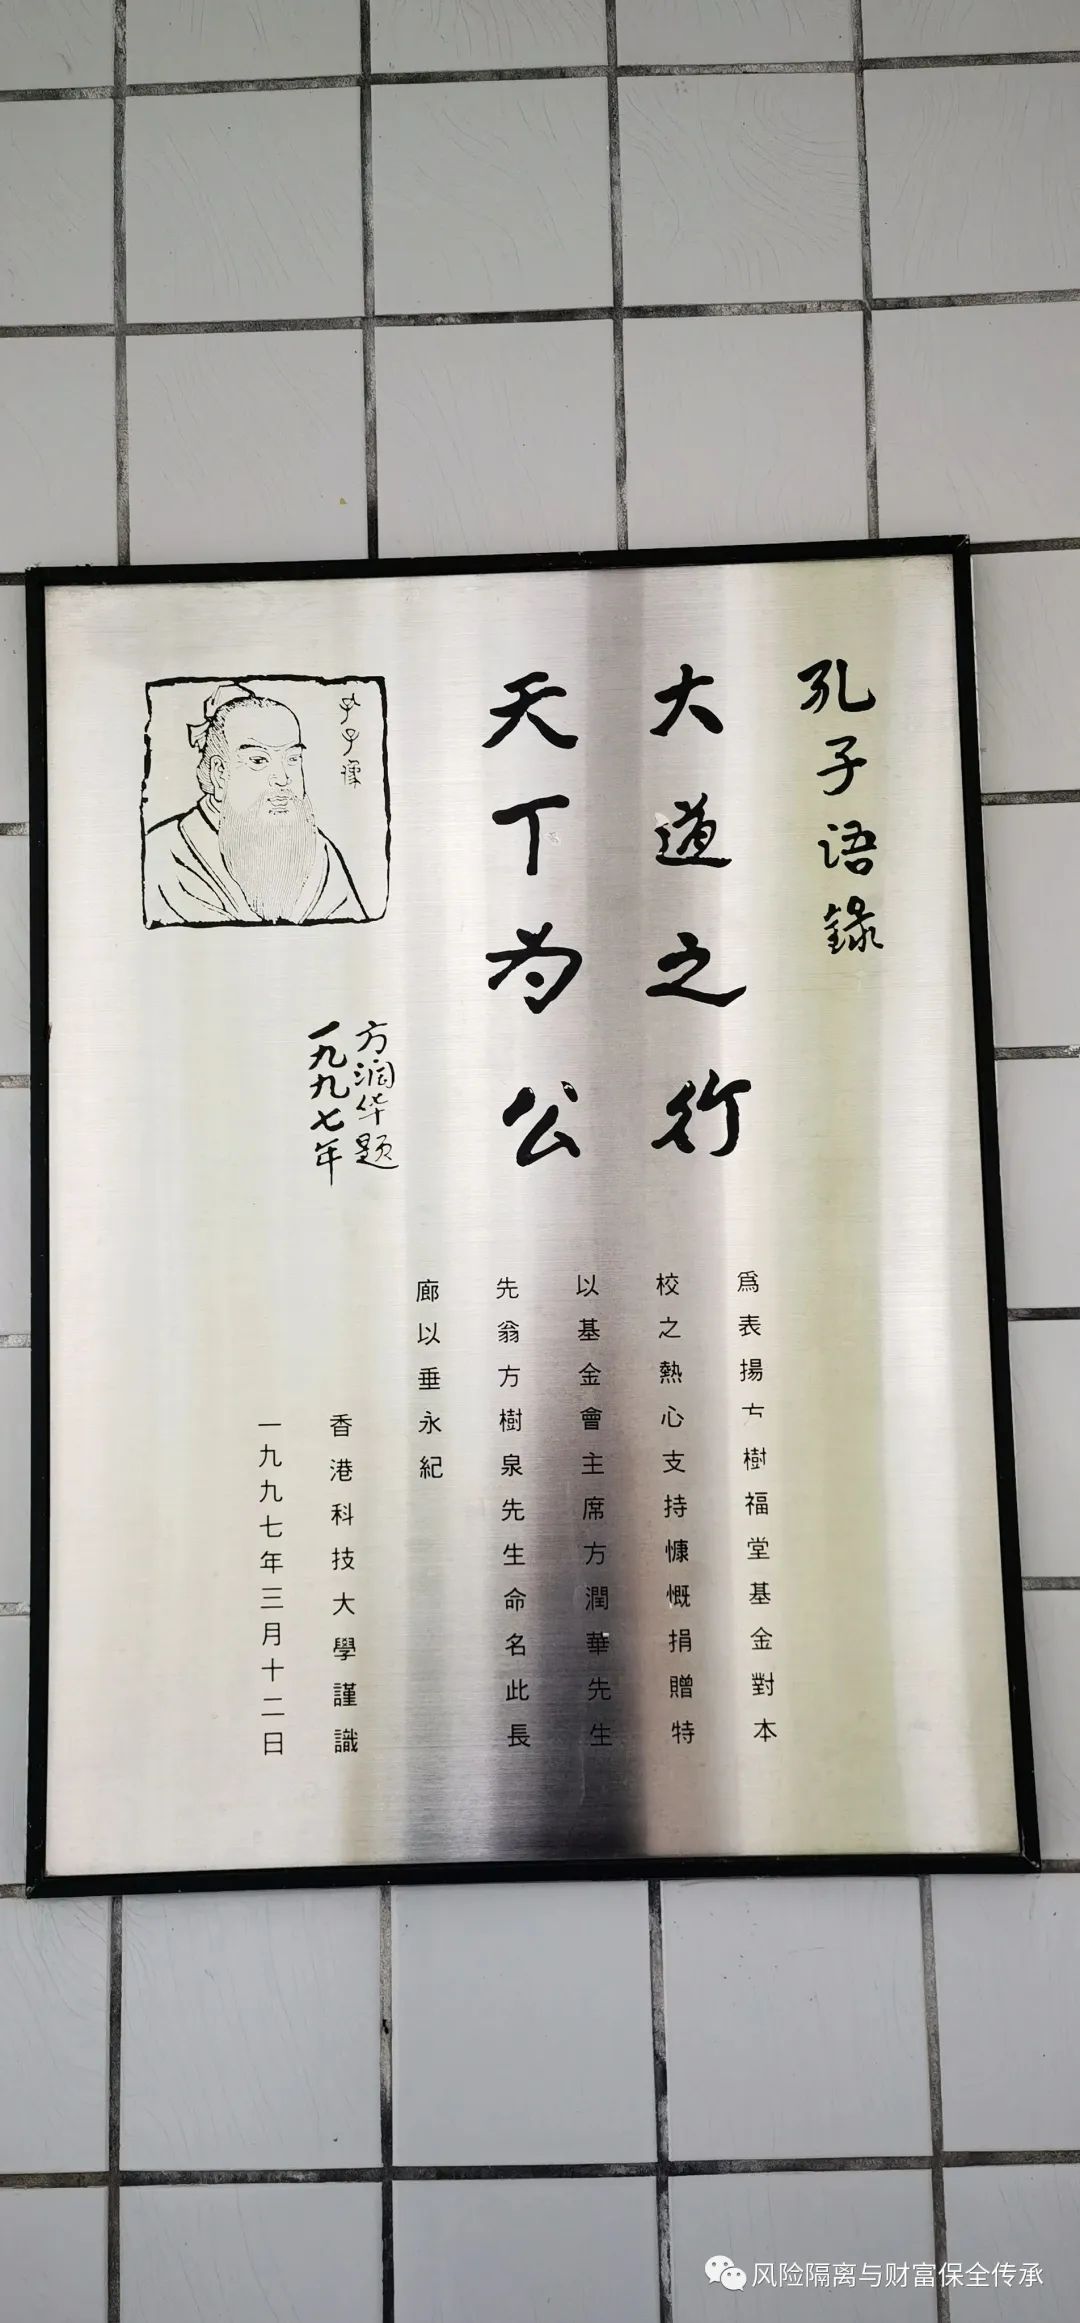 孔子语錄
大道之行
天下为公
孔子像
方润华题
一九九七年
爲表揚方樹福堂基金對本
校之熱心支持慷慨捐贈特
以基金會主席方潤華先生
先翁方樹泉先生命名此長
廊以垂永紀
香港科技大學謹識
一九九七年三月十二日
风险隔离与财富保全传承